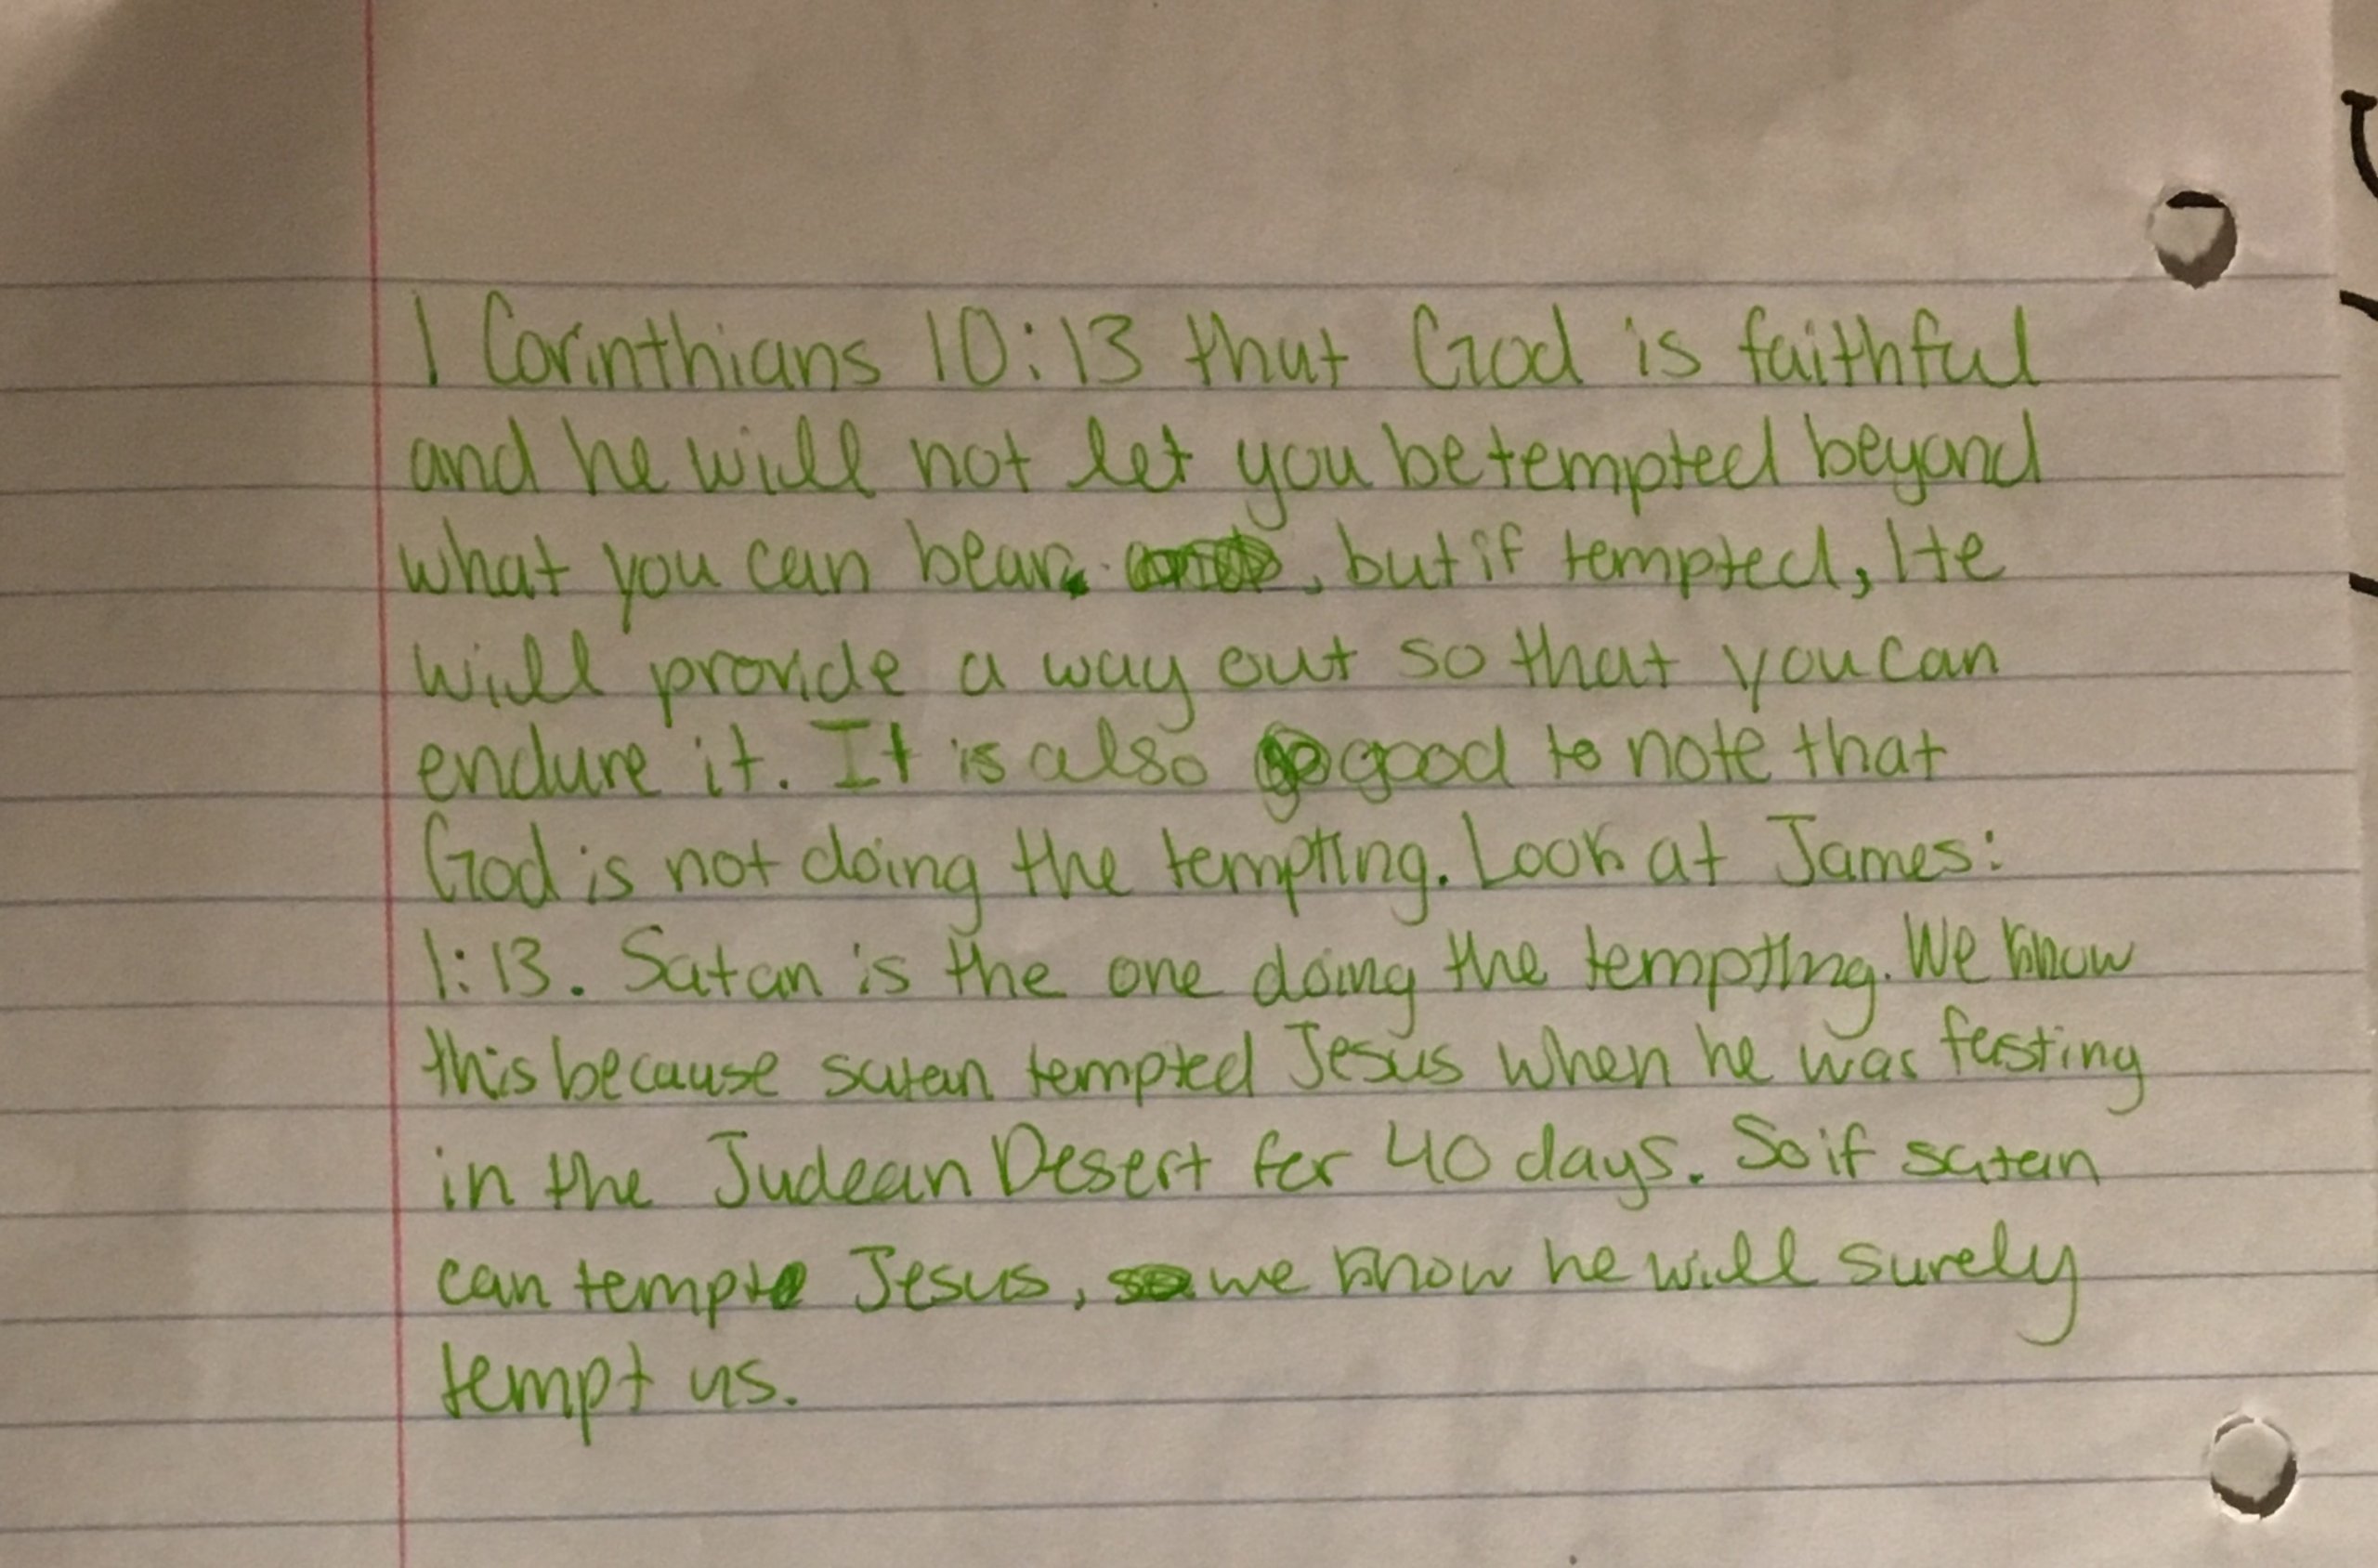 1 Corinthians 10:13 that God is faithful
and he will not let you be tempted beyond
what you can bear, but if tempted, He
will provide a way out so that you can
endure it. It is also good to note that
God is not doing the tempting. Look at James:
1:13. Satan is the one doing the tempting. We know
this because satan tempted Jesus when he was fasting
in the Judean Desert for 40 days. So if satan
can tempt Jesus, we know he will surely
tempt us.